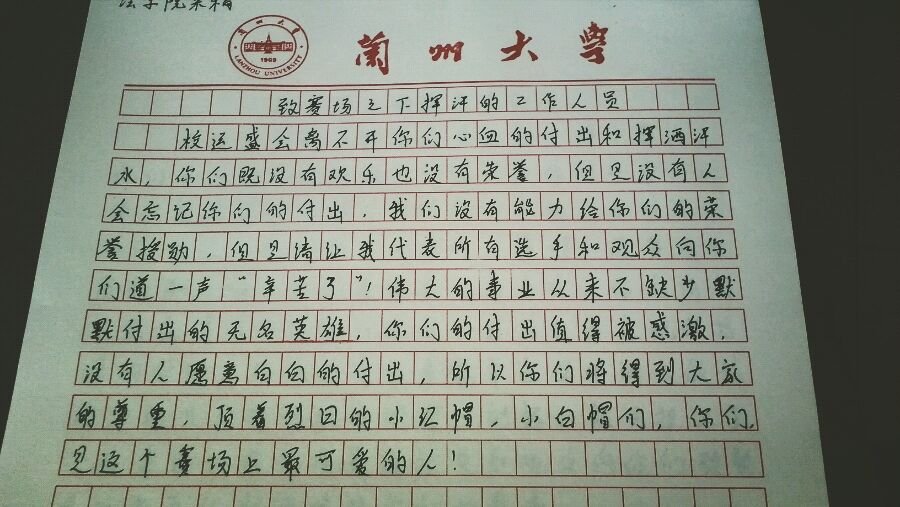 法学院来稿
兰州大学
1909
LANZHOU UNIVERSITY
兰州大学
致赛场之下挥汗的工作人员
校运盛会离不开你们心血的付出和挥洒汗
水,你们既没有欢乐也没有荣誉,但是没有人
会忘记你们的付出,我们没有能力给你们的荣
誉授勋,但是请让我代表所有选手和观众向你
们道一声“辛苦了”!伟大的事业从来不缺少默
默付出的无名英雄,你们的付出值得被感激,
没有人愿意白白的付出,所以你们将得到大家
的尊重,顶着烈日的小红帽,小白帽们,你们,
是这个赛场上最可爱的人!